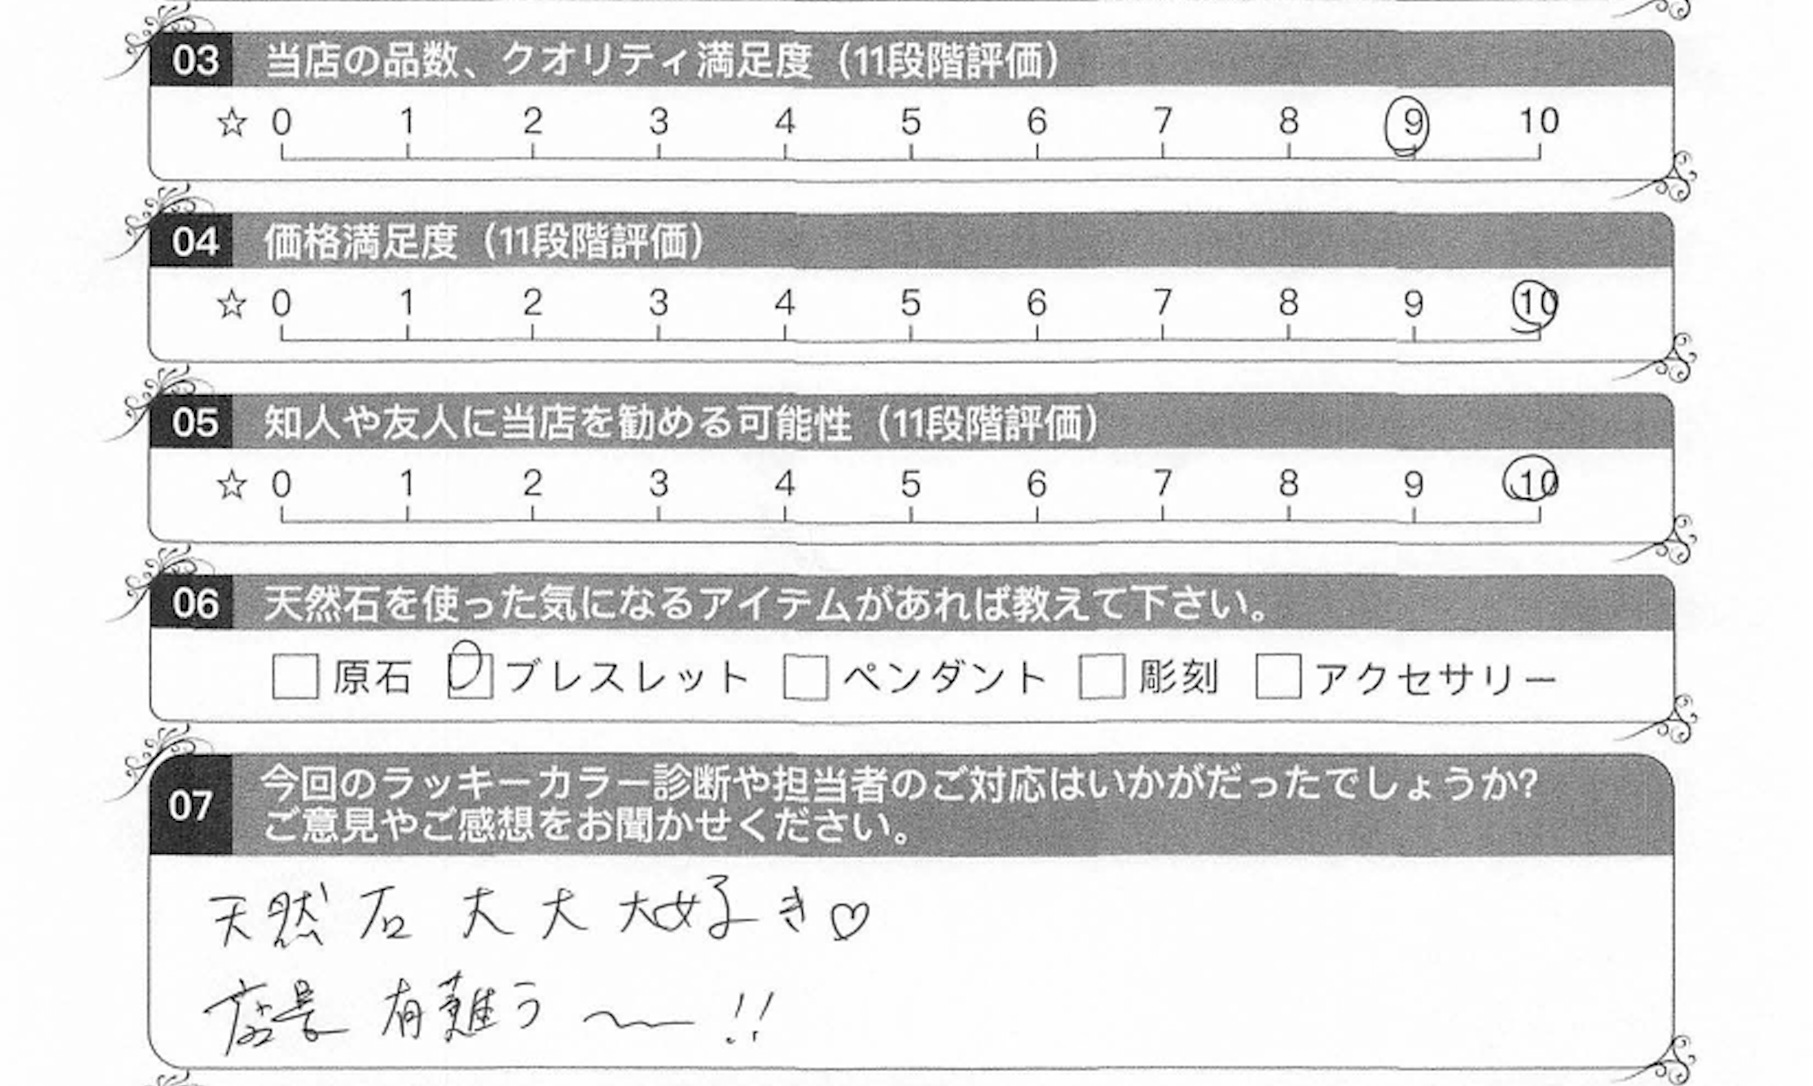 03 当店の品数、クオリティ満足度（11段階評価）
☆ 0 1 2 3 4 5 6 7 8 9 10
04 価格満足度（11段階評価）
☆ 0 1 2 3 4 5 6 7 8 9 10
05 知人や友人に当店を勧める可能性（11段階評価）
☆ 0 1 2 3 4 5 6 7 8 9 10
06 天然石を使った気になるアイテムがあれば教えて下さい。
原石 ブレスレット ペンダント 彫刻 アクセサリー
07 今回のラッキーカラー診断や担当者のご対応はいかがだったでしょうか?
ご意見やご感想をお聞かせください。
天然石大大大好き♡
店長有難う〜!!